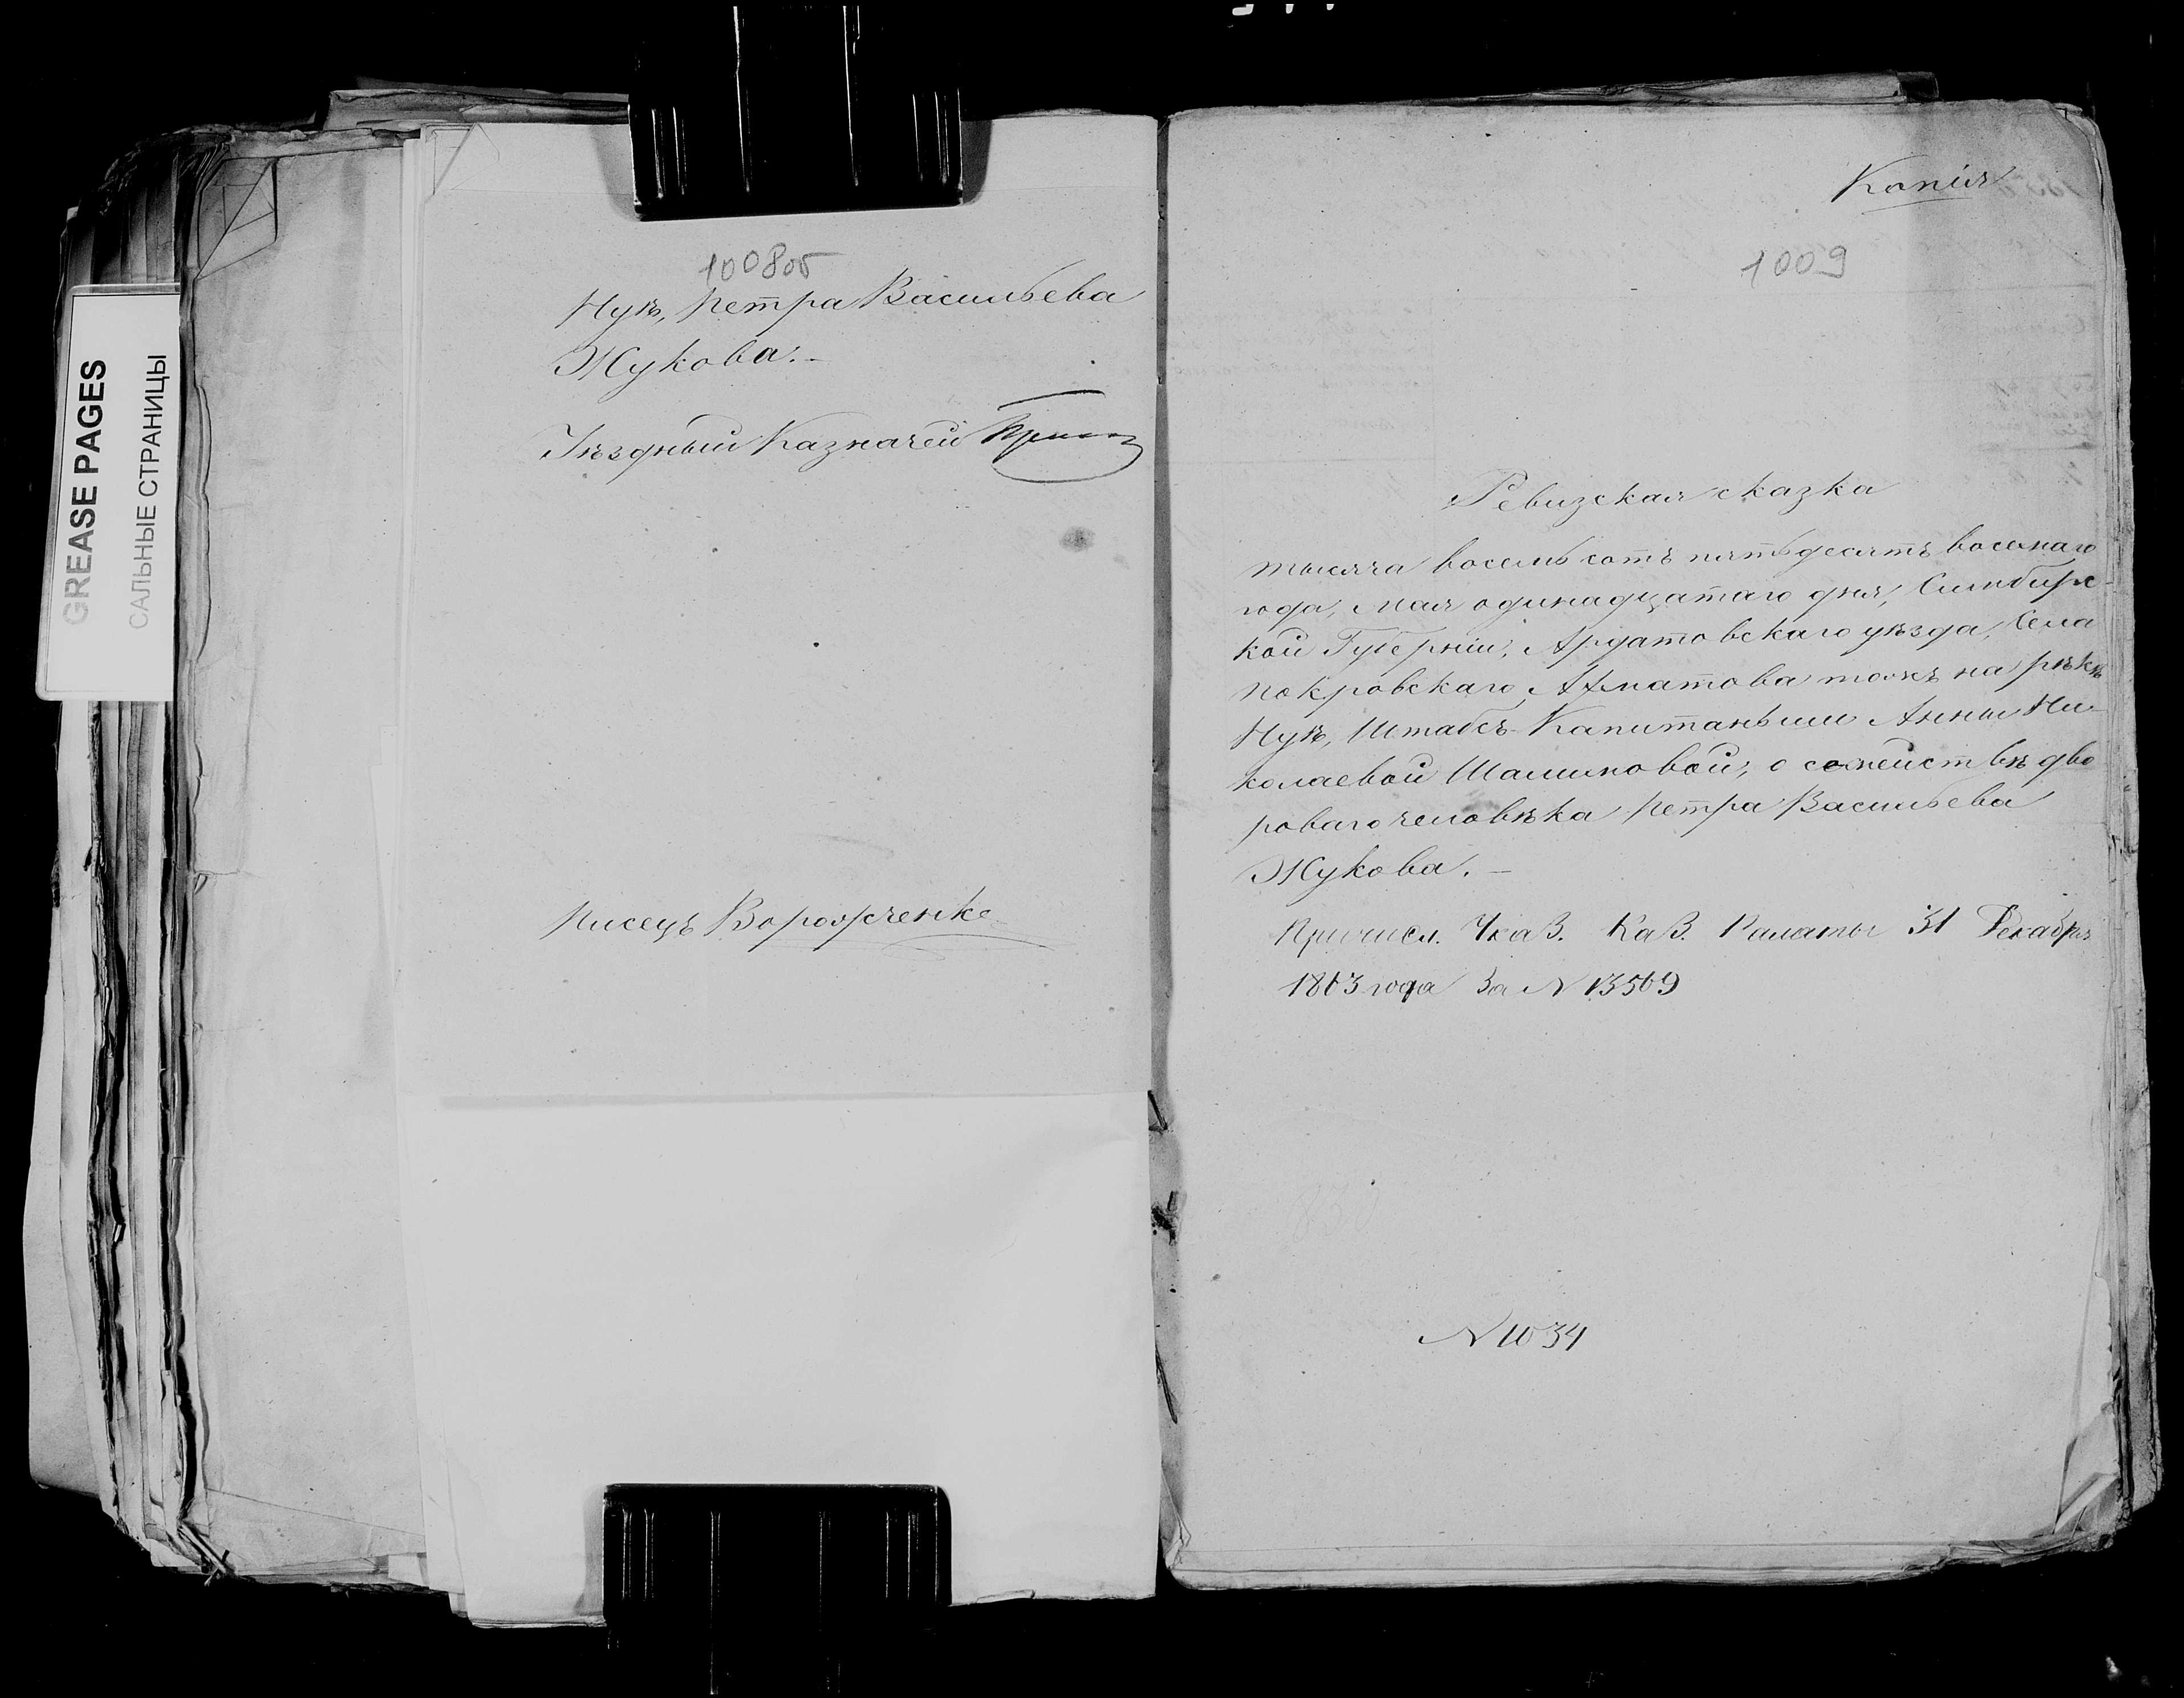 GREASE PAGES
САЛЬНЫЕ СТРАНИЦЫ
1008об
Нукѣ, Петра Васильева
Жукова.-
Уѣздный Казначей
Писецъ
Копія
1009
Ревизская сказка
тысяча восемь сотъ пятьдесятъ восьмаго
года, Мая одинадцатаго дня, Симбирс-
кой Губерніи, Ардатовскаго уѣзда, Села
Покровскаго, Ахматова тожъ на рѣкѣ
Нукѣ, Штабсъ-Капитанши Анны Ни-
колаевой Шалимовой, о семействѣ дво
роваго человѣка Петра Васильева
Жукова. -
Причисл. Указ. Каз. Палаты 31 Декабря
1863 года За N 13569
N 1034